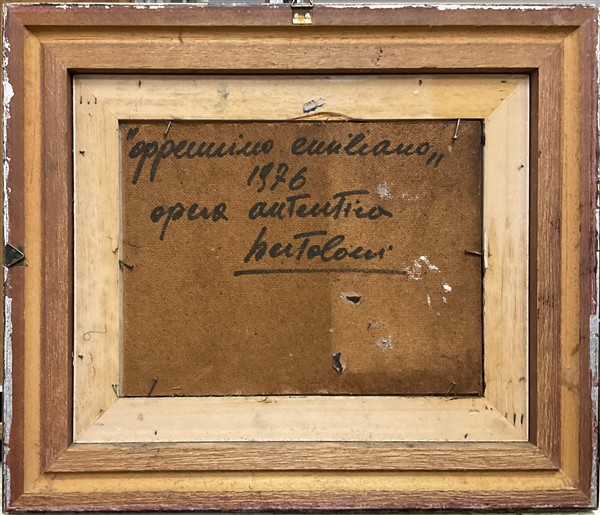 "appennino emiliano„
1976
opera autentica
bertoloni